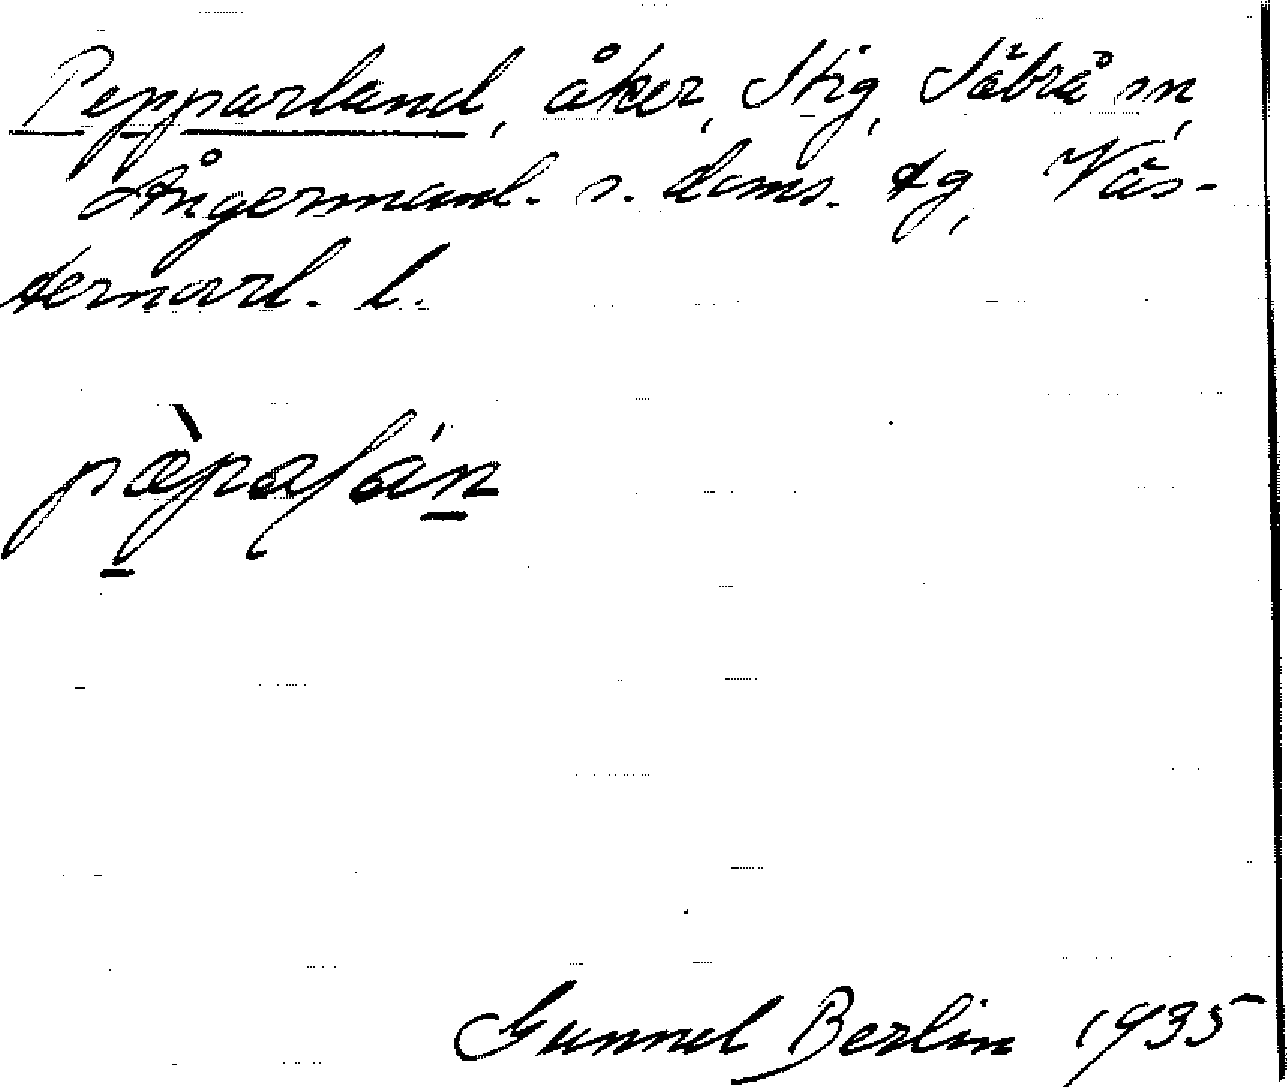 Pepparland, åker, Stig, Säbrå sn,
Ångermanl. s. doms. tg, Väs-
ternorrl. l.
pæ̀paɼlán
Gunnel Berlin 1935